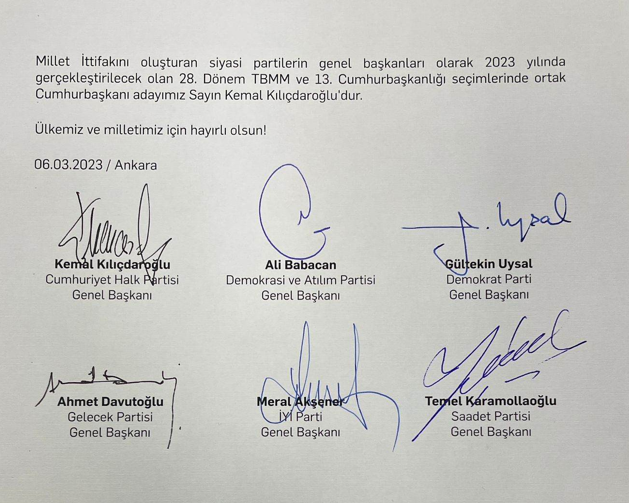 Millet İttifakını oluşturan siyasi partilerin genel başkanları olarak 2023 yılında
gerçekleştirilecek olan 28. Dönem TBMM ve 13. Cumhurbaşkanlığı seçimlerinde ortak
Cumhurbaşkanı adayımız Sayın Kemal Kılıçdaroğlu'dur.
Ülkemiz ve milletimiz için hayırlı olsun!
06.03.2023 / Ankara
Kemal Kılıçdaroğlu
Cumhuriyet Halk Partisi
Genel Başkanı
Ali Babacan
Demokrasi ve Atılım Partisi
Genel Başkanı
Uysal
Gültekin Uysal
Demokrat Parti
Genel Başkanı
Ahmet Davutoğlu
Gelecek Partisi
Genel Başkanı
Meral Akşener
İYİ Parti
Genel Başkanı
Temel Karamollaoğlu
Saadet Partisi
Genel Başkanı